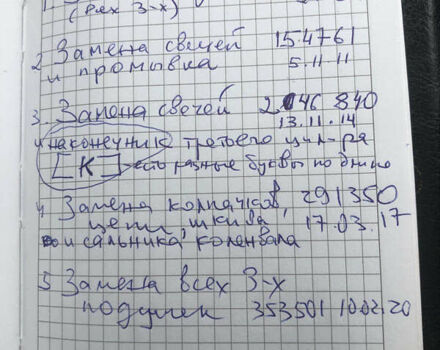 (всех 3-х)
2 Замена свечей 154761
и промывка 5.11.11
3. Замена свечей 246 840
13.11.14
и наконечник третьего цил-ра
[К] есть разные буквы по длине
4 Замена колпачков, 291350
цепи, шкива 17.03.17
и сальника коленвала
5 Замена всех 3-х
подушек 353501 10.02.20